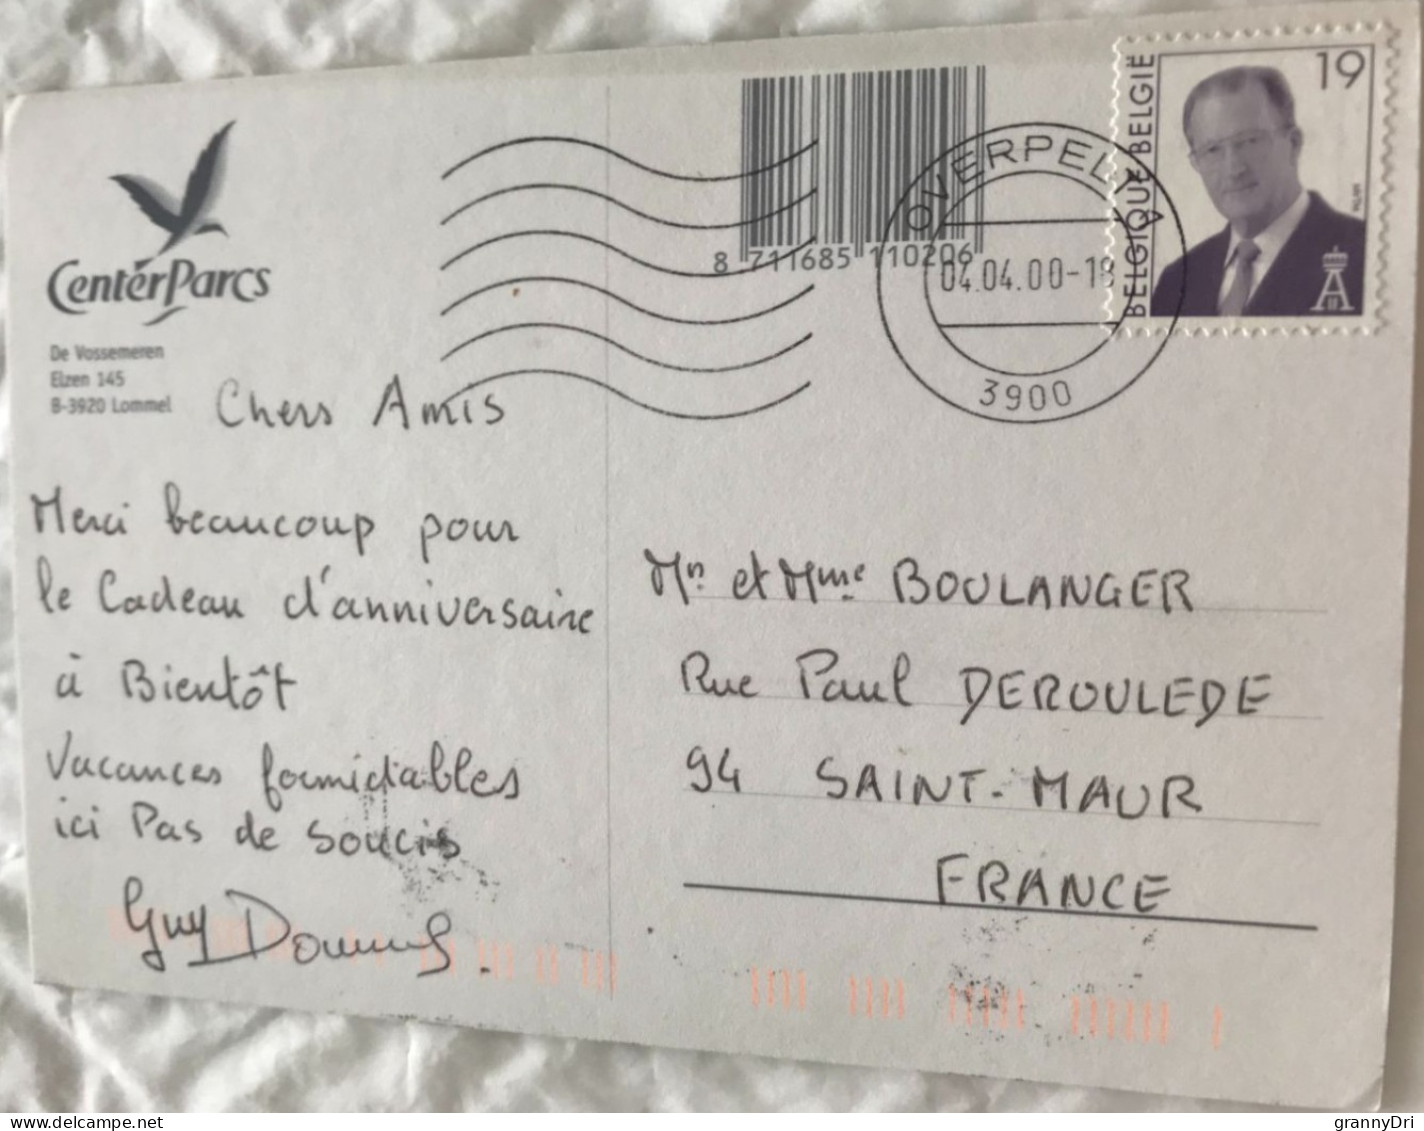 CenterParcs
De Vossemeren
Elzen 145
B-3920 Lommel
Chers Amis
Merci beaucoup pour
le Cadeau d'anniversaire
à Bientôt
Vacances formidables
ici Pas de soucis
Guy
8 711685 110206
OVERPELT
04.04.00-18
3900
BELGIQUE BELGIË
19
Mr et Mme BOULANGER
Rue Paul DEROULEDE
94 SAINT-MAUR
FRANCE
www.delcampe.net
grannyDri